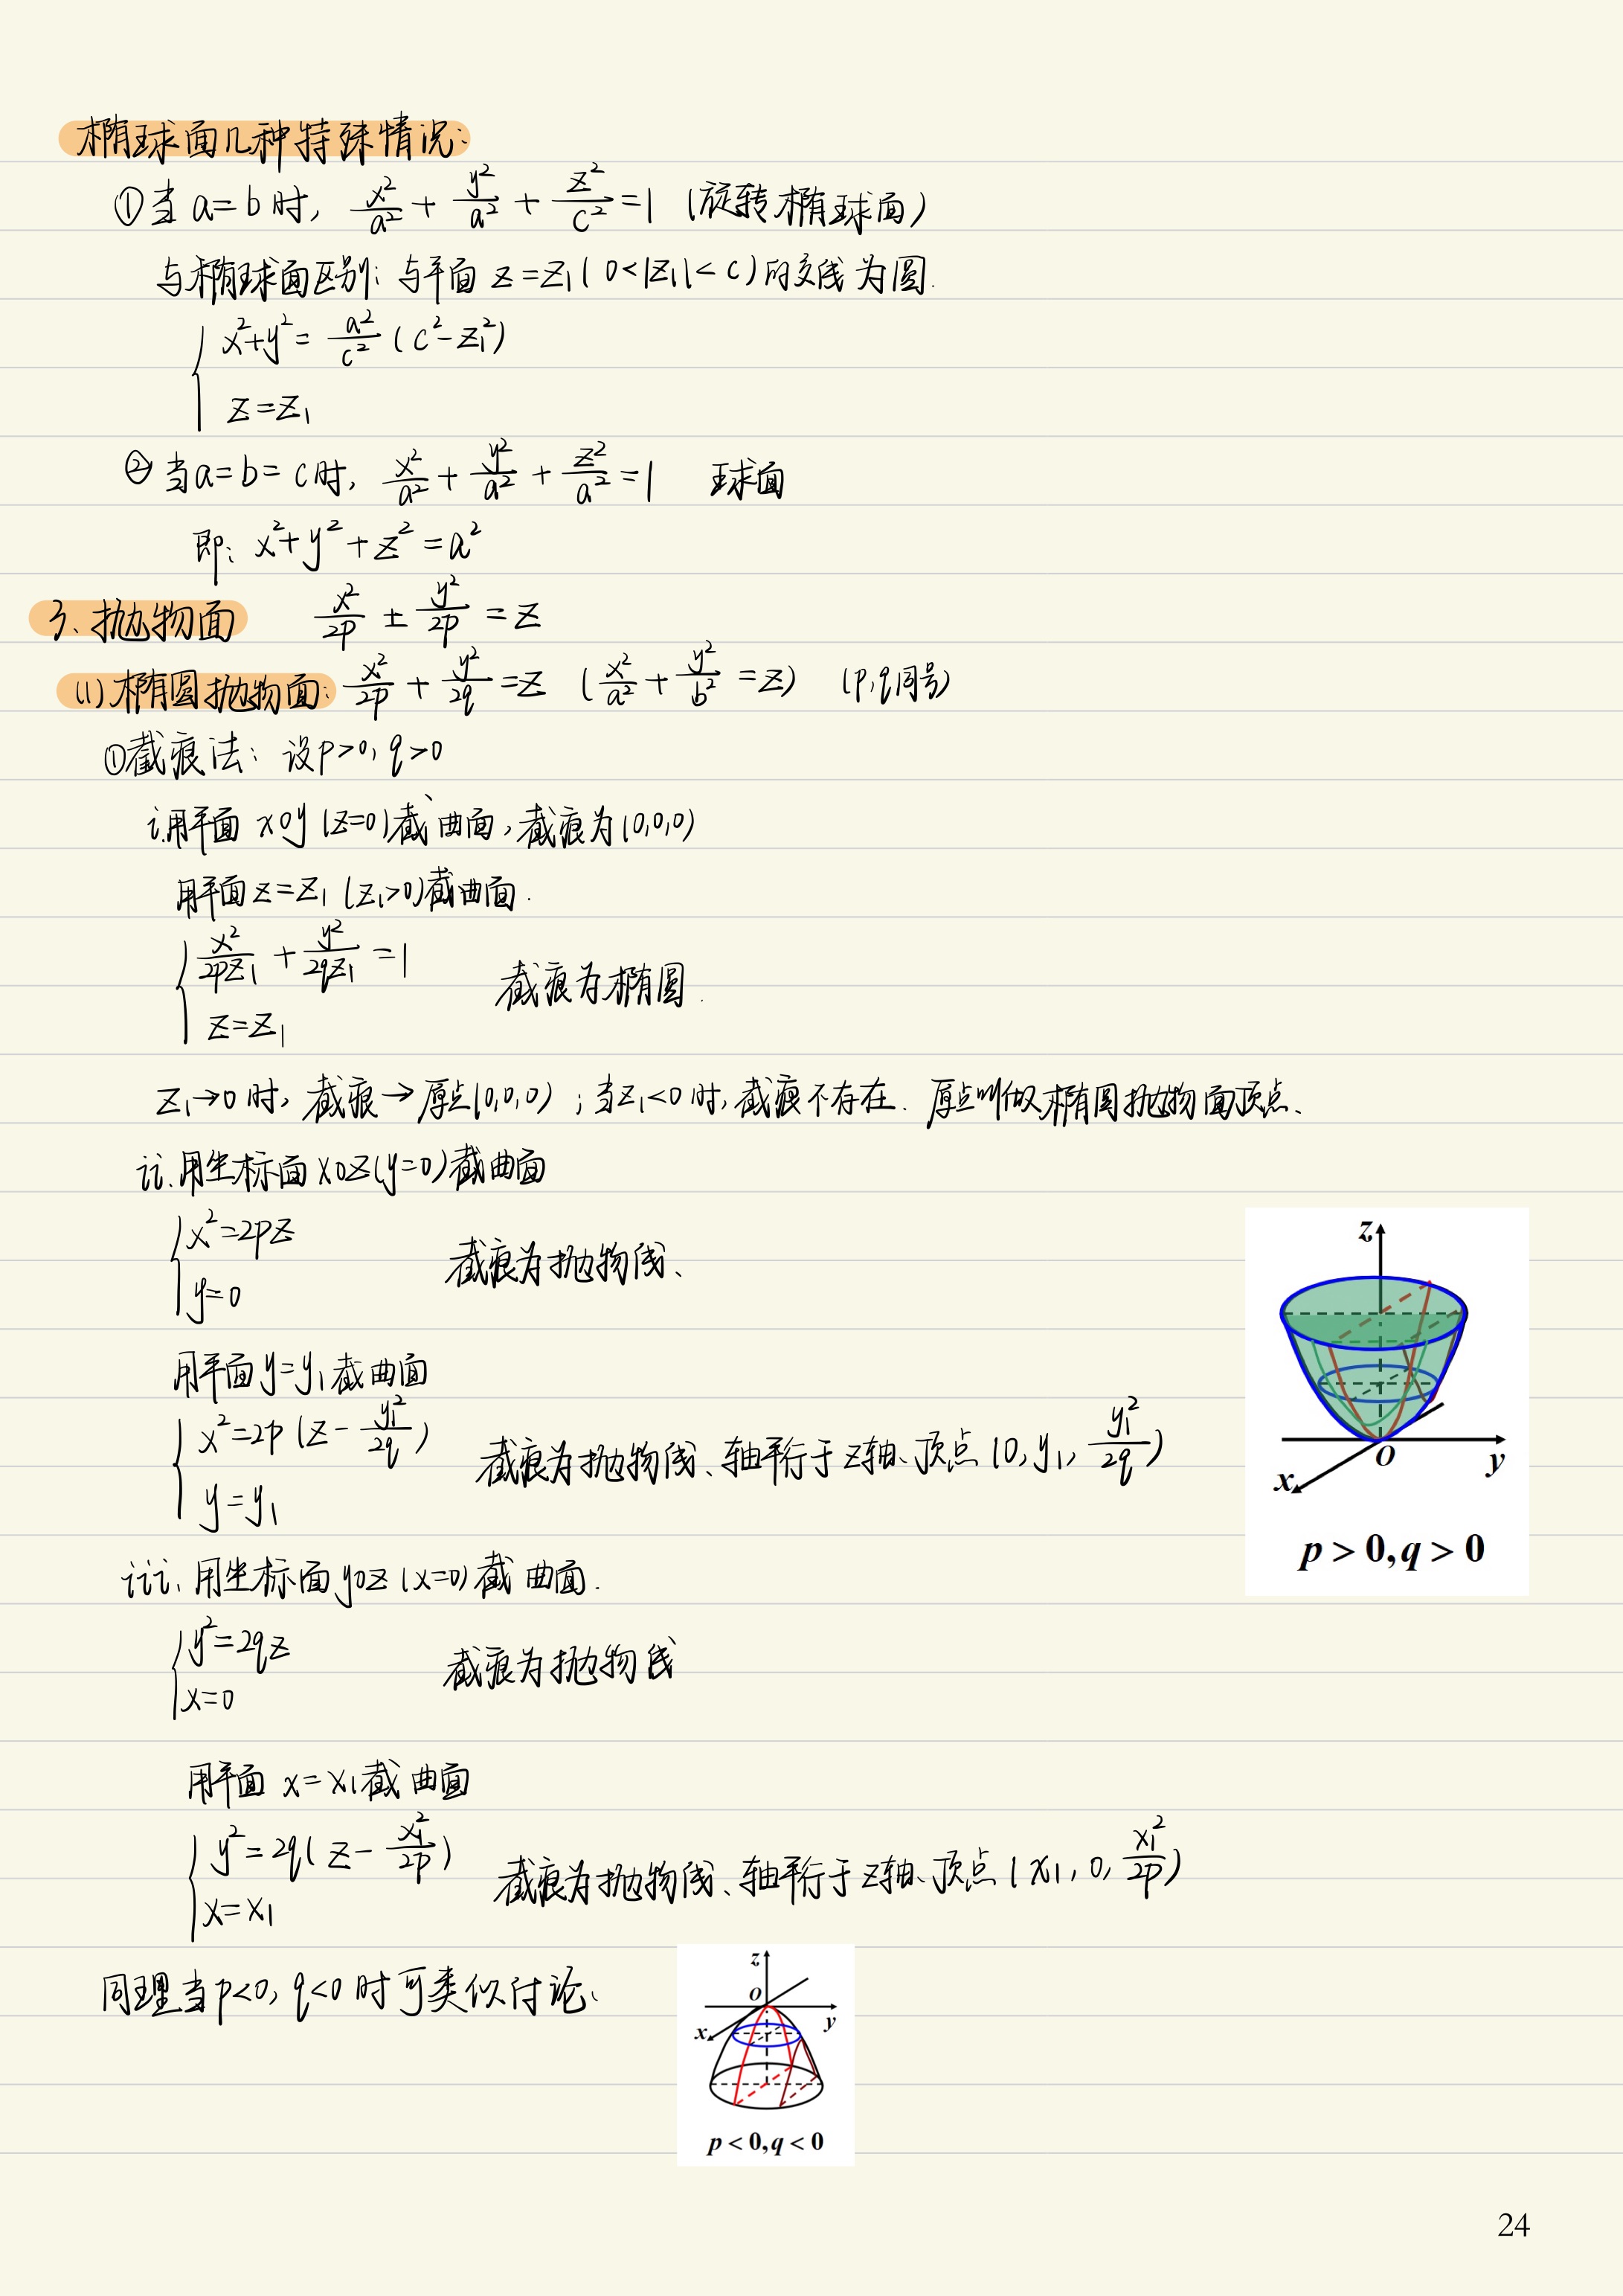 椭球面几种特殊情况:
①当 a=b 时, x²/a² + y²/a² + z²/c² = 1 (旋转椭球面)
与椭球面区别: 与平面 z=z₁(0<|z₁|<c)的交线为圆.
{ x²+y² = a²/c² (c²-z₁²)
z=z₁
②当a=b=c时, x²/a² + y²/a² + z²/a² = 1 球面
即: x²+y²+z²=a²
3、抛物面 x²/2p ± y²/2p = z
(1)椭圆抛物面: x²/2p + y²/2q = z (x²/a² + y²/b² = z) (p,q同号)
①截痕法: 设p>0, q>0
i.用平面 xoy (z=0)截曲面,截痕为(0,0,0)
用平面z=z₁ (z₁>0)截曲面.
{ x²/2pz₁ + y²/2qz₁ = 1
截痕为椭圆.
z=z₁
z₁→0 时, 截痕→原点(0,0,0) ; 当z₁<0 时, 截痕不存在. 原点叫做椭圆抛物面顶点、
ii.用坐标面xoz(y=0)截曲面
{ x²=2pz
截痕为抛物线、
y=0
用平面y=y₁截曲面
{ x²=2p (z - y₁²/2q)
截痕为抛物线、轴平行于z轴、顶点 (0, y₁, y₁²/2q)
y=y₁
iii、用坐标面yoz (x=0)截曲面.
{ y²=2qz
截痕为抛物线
x=0
用平面 x=x₁截曲面
{ y²=2q( z - x₁²/2p)
截痕为抛物线、轴平行于z轴、顶点 (x₁, 0, x₁²/2p)
x=x₁
同理当p<0, q<0 时可类似讨论、
z
O
y
x
p > 0, q > 0
z
O
y
x
p < 0, q < 0
24